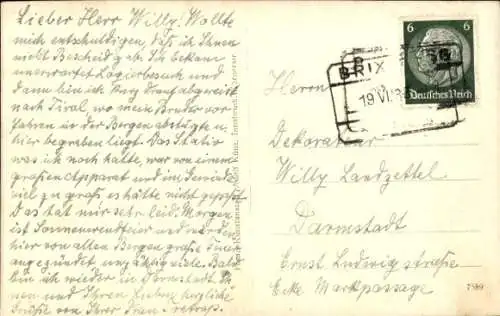 Lieber Herr Willy. Wollte
mich entschuldigen, daß ich Ihnen
nicht Bescheid gab. Ich bekam
unerwartet Logierbesuch und
dann bin ich kurz drauf abgereist
nach Tirol, wo mein Bruder vor
Jahren in den Bergen abstürzte u.
hier begraben liegt. Das Stativ
was ich noch hatte, war von einem
großen Apparat und im Gewinde
viel zu groß es hätte nicht gepaßt.
Das tat mir sehr leid. Morgen
ist Sonnenwendfeier und werden
hier von allen Bergen große Feuer
angezündet viele. Bald
bin ich wieder in Darmstadt. Ih-
nen und Ihren herzliche
Grüße von Ihrer Frau
6
Deutsches Reich
BRIX
19 VI.
Herrn
Dekorateur
Willy Landzettel
Darmstadt
Ernst Ludwig straße
Ecke Markpassage